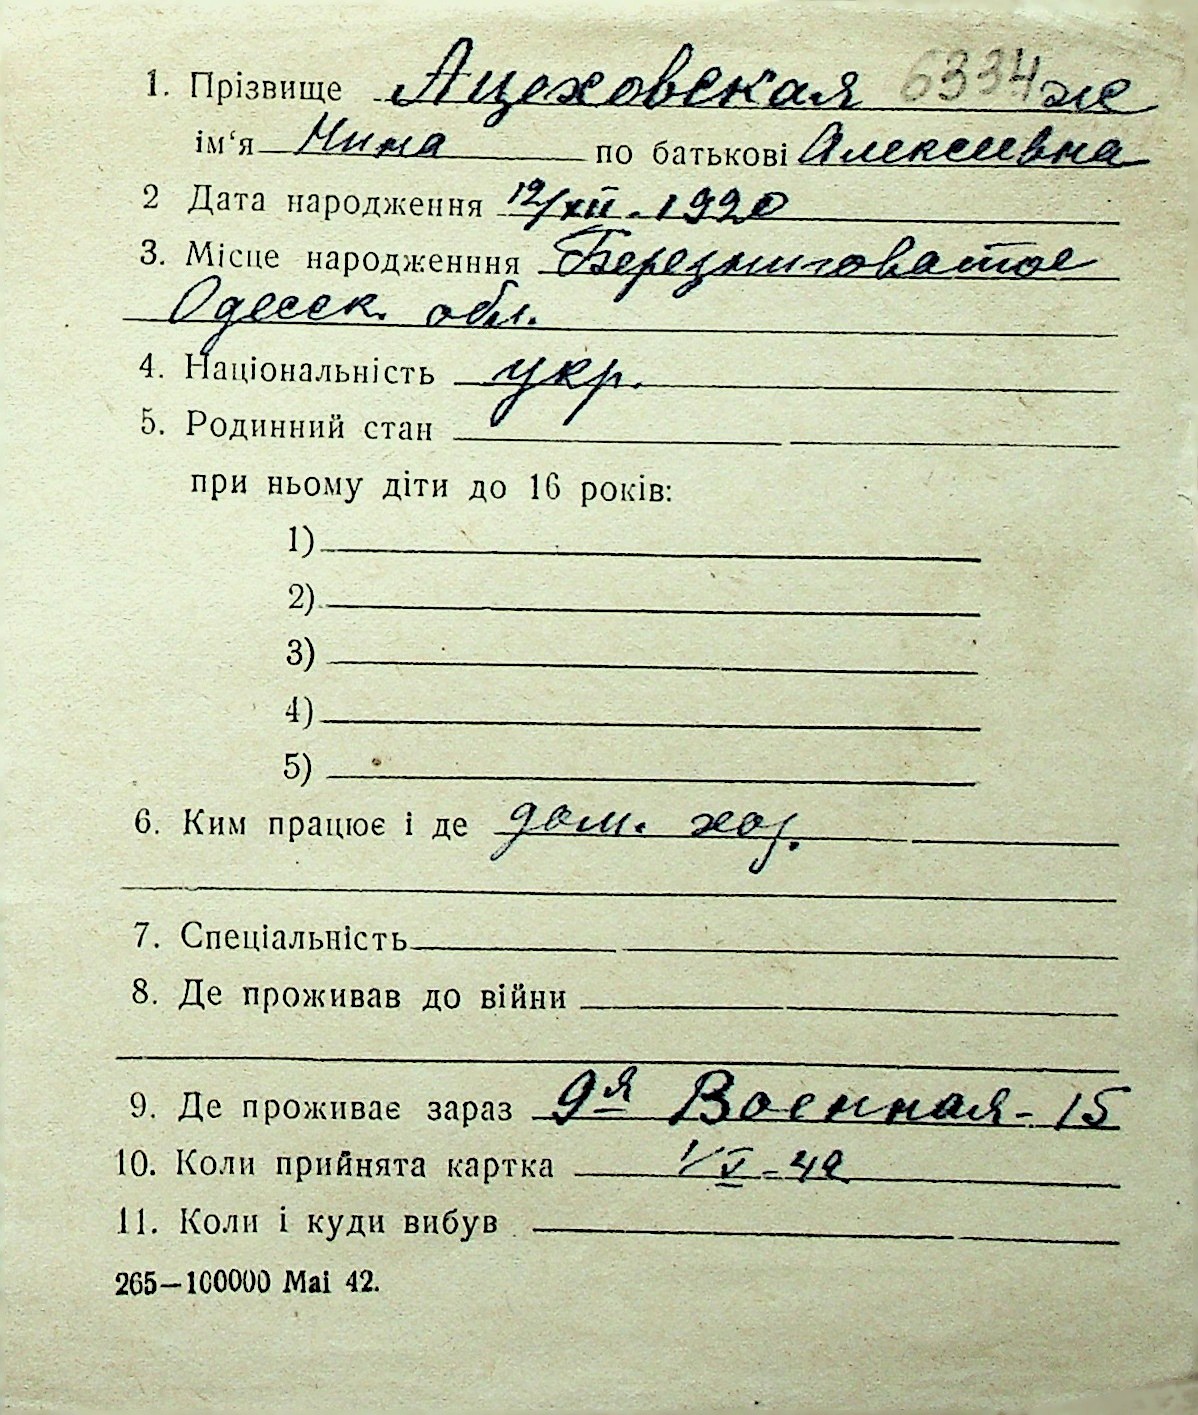 1. Прізвище Ацеховская 6334 же
ім‘я Нина по батькові Алексеевна
2 Дата народження 12/XII. 1920
3. Місце народженння Березниговатое
Одесск. обл.
4. Національність укр.
5. Родинний стан
при ньому діти до 16 років:
1)
2)
3)
4)
5)
6. Ким працює і де дом. хоз.
7. Спеціальність
8. Де проживав до війни
9. Де проживає зараз 9я Военная - 15
10. Коли прийнята картка 1/V - 42
11. Коли і куди вибув
265—100000 Mai 42.